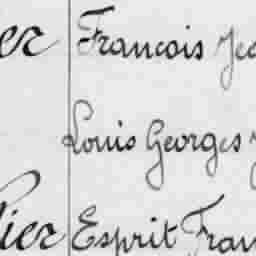 er François Jea
Louis Georges J
lier Esprit Fran